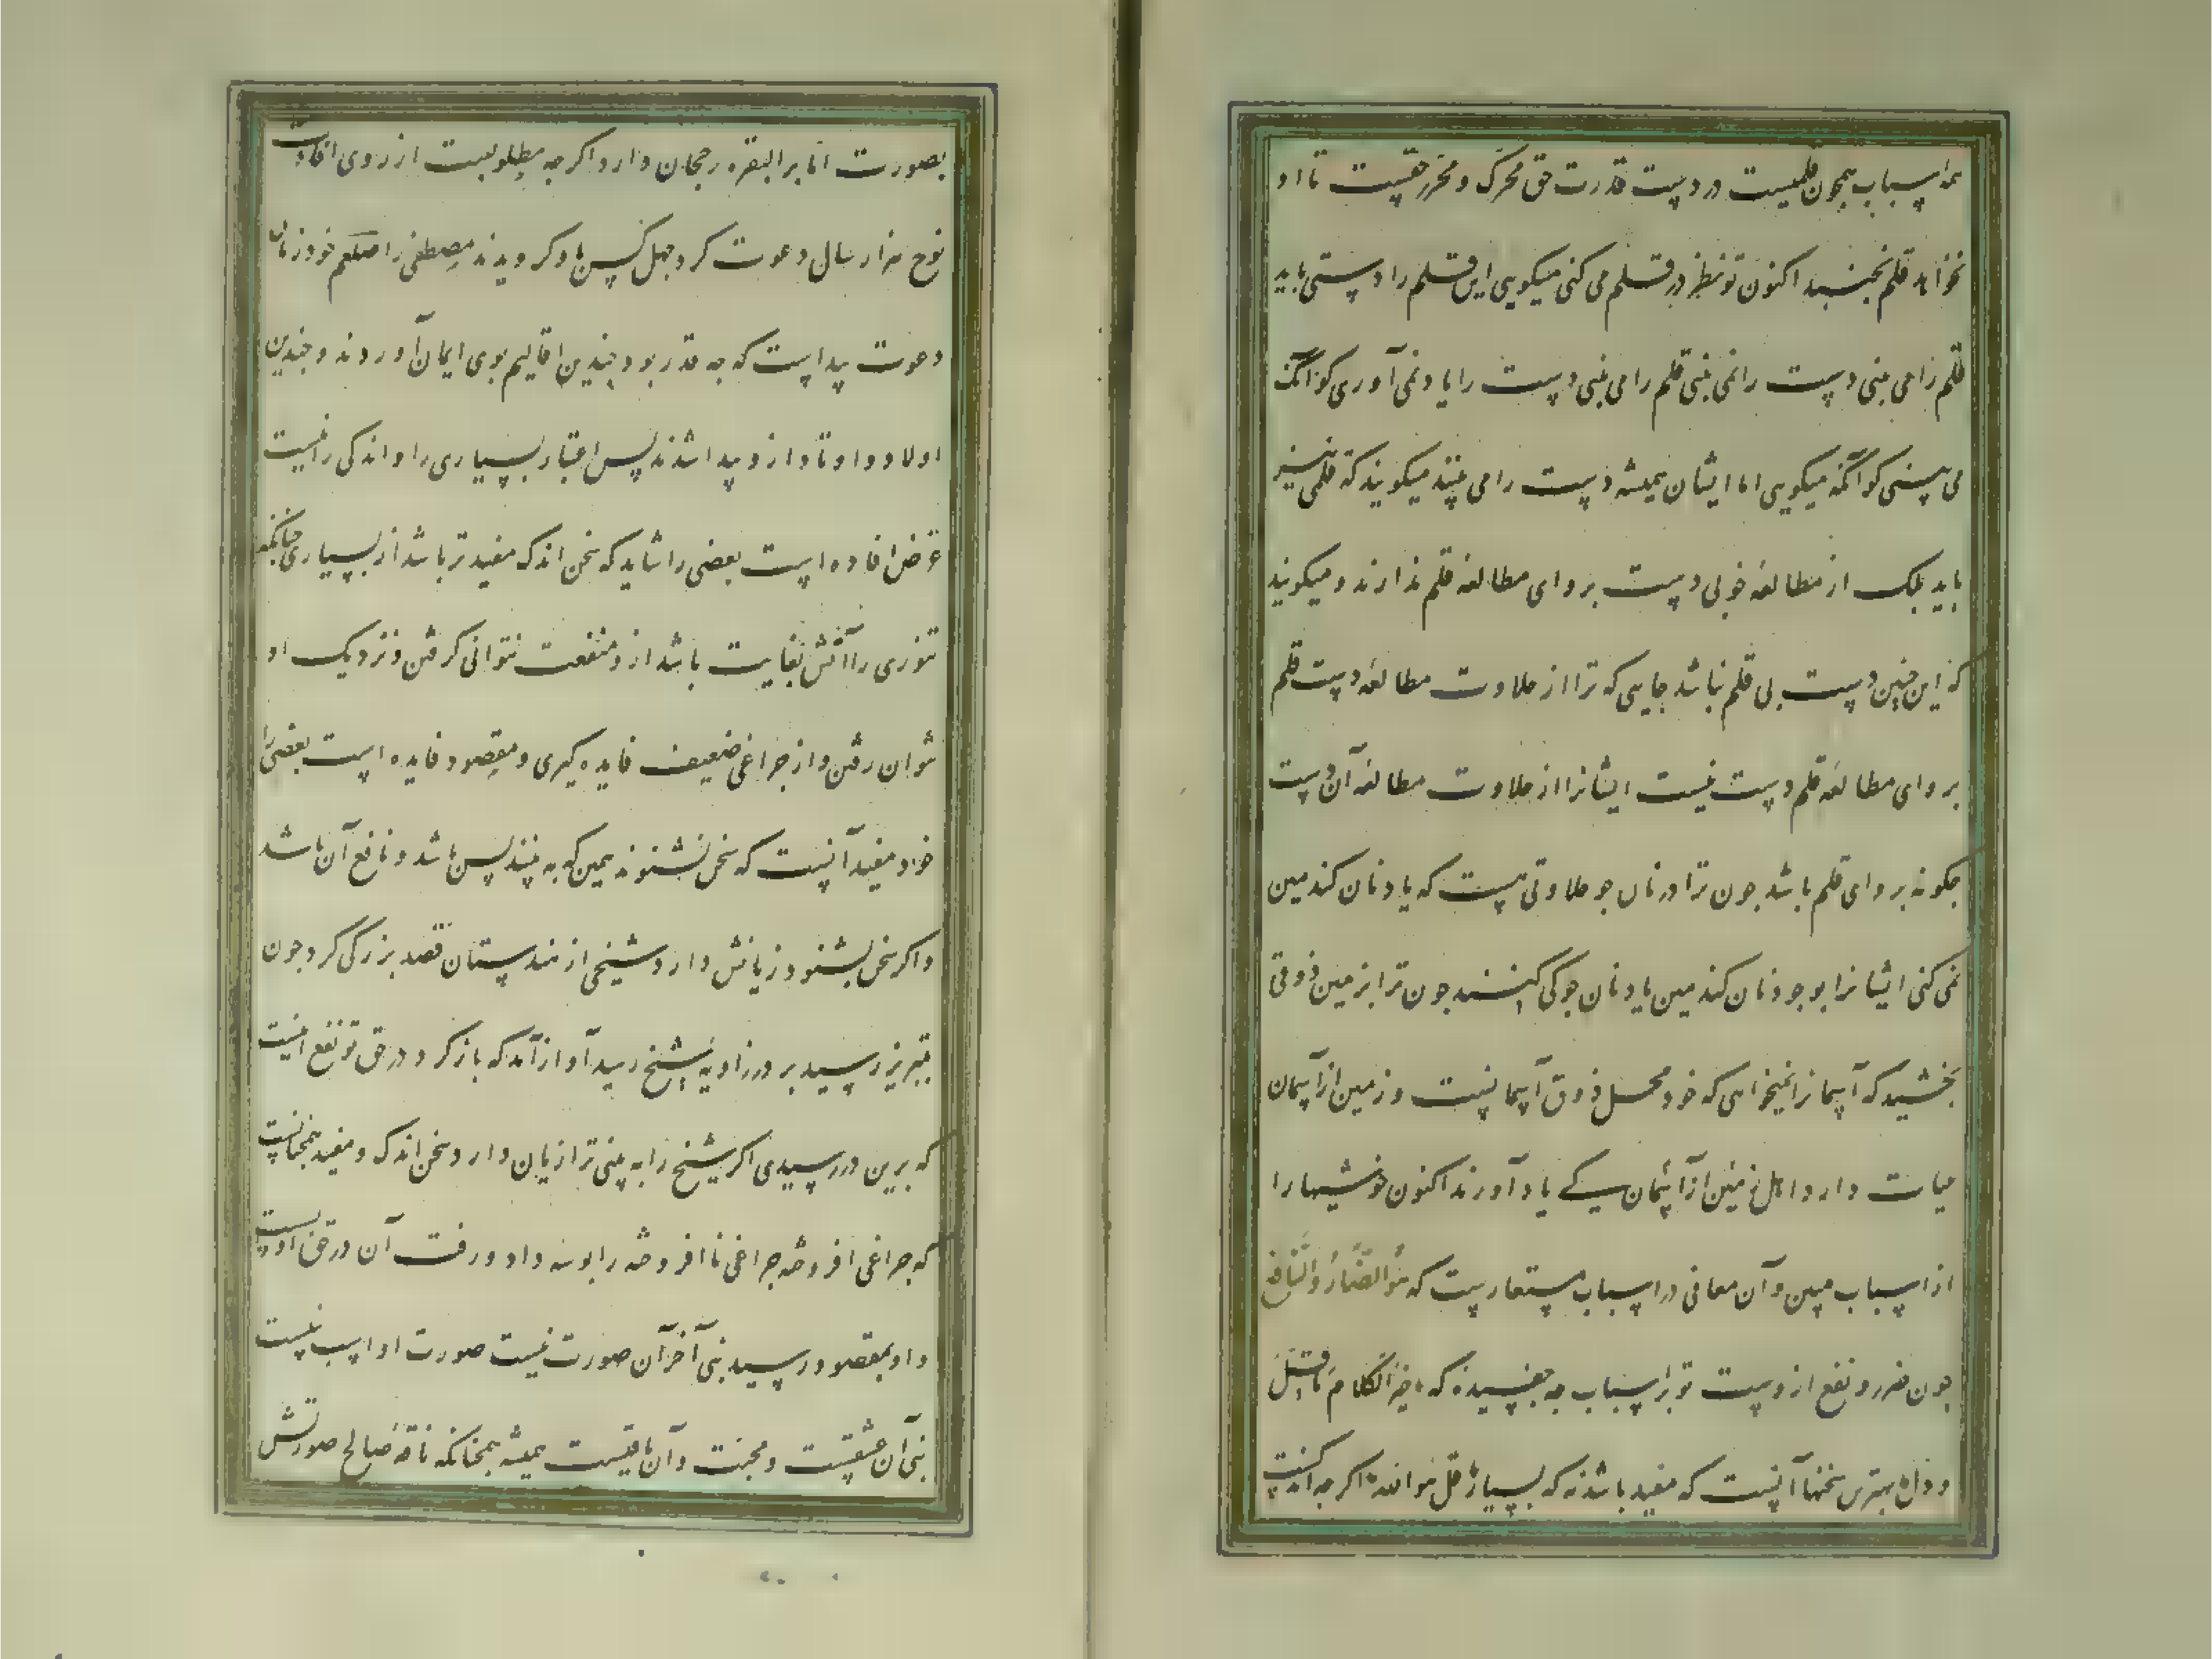 همه اسباب همچون قلمیست در دست قدرت حق محرک و محرر حقست تا او
نخواهد قلم نجنبد اکنون تو نظر در قلم می کنی میکویی این قلم را دستی باید
قلم را می بینی دست را نمی بینی قلم را می بینی دست را یاد نمی آوری کو آنک
می بینی کو آنکه میکویی اما ایشان همیشه دست را می بینند میکویند که قلمی نیز
باید بلک از مطالعه خوبی دست بروای مطالعه قلم ندارند و میکویند
که این چنین دست بی قلم نباشد جایی که ترا از حلاوت مطالعه دست قلم
بروای مطالعه قلم دست نیست ایشانرا از حلاوت مطالعه آن دست
جکونه بروای قلم باشد جون ترا در نان جو حلاوتی هست که یاد نان کندمین
نمی کنی ایشانرا بوجود نان کندمین یاد نان جو کی کنند جون ترا بر زمین ذوقی
بخشید که آسمانرا نمیخواهی که خود محل ذوق آسمانست و زمین از آسمان
حیات دارد اهل زمین از آسمان کے یاد آورند اکنون خوشیها را
از اسباب مبین و آن معانی در اسباب مستعارست که هُوَ الضَّارُّ وَالنَّافِعُ
جون ضرر و نفع ازوست تو بر اسباب جه جفسیده که خَیرُ الکَلامِ مَا قَلَّ
و دل بهترین سخنها آنست که مفید باشد نه که بسیار قل هو الله اکر جه اندکست
بصورت اما بر البقره رجحان دارد اکر جه مطولست از روی افادت
نوح هزار سال دعوت کرد جهل کس باو کرویدند مصطفی را صلعم خود زمان
دعوت پیداست که جه قدر بود چندین اقالیم بوی ایمان آوردند و چندین
اولاد و اوتاد ازو پیدا شدند پس اعتبار بسیاری را و اندکی را نیست
غرض افاده است بعضی را شاید که سخن اندک مفیدتر باشد از بسیاری جنانکه
تنوری را آتش بغایت باشد ازو منفعت نتوانی کرفتن و نزدیک او
نتوان رفتن و از جراغی ضعیف فایده کیری و مقصود فایده است بعضی را
خود مفید آنست که سخن نشنوند همین که به بینند بس باشد و نافع آن باشد
و اکر سخن بشنود زیانش دارد شیخی از هندستان قصد بزرکی کرد جون
بتبریز رسید بر در زاویه شیخ رسید آواز آمد که بازکرد در حق تو نفع اینست
که برین در رسیدی اکر شیخ را به بینی ترا زیان دارد سخن اندک و مفید همجنانست
که جراغی افروخته جراغی ناافروخته را بوسه داد و رفت آن در حق او بس است
و او بمقصود رسید نبی آخر آن صورت نیست صورت او اسب نبیست
نبی آن عشقست و محبت و آن باقیست همیشه همجنانکه ناقه صالح صورتش